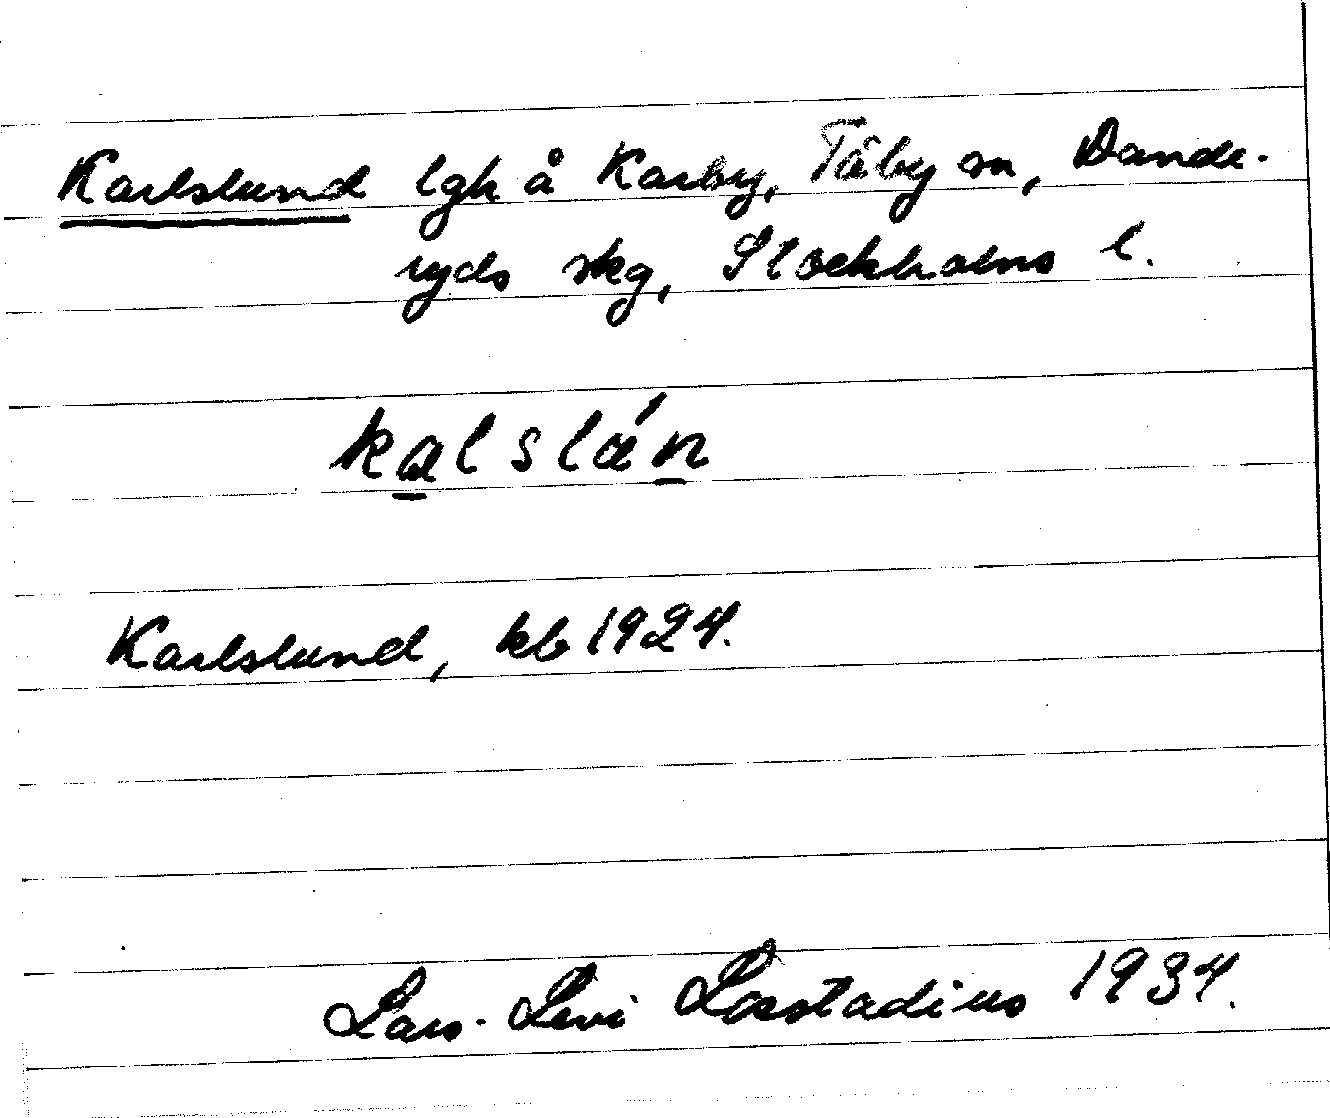 Karlslund lgh å Karby, Täby sn, Dande-
ryds skg, Stockholms l.
kalslán
Karlslund, kb 1924.
Lars-Levi Læstadius 1934.